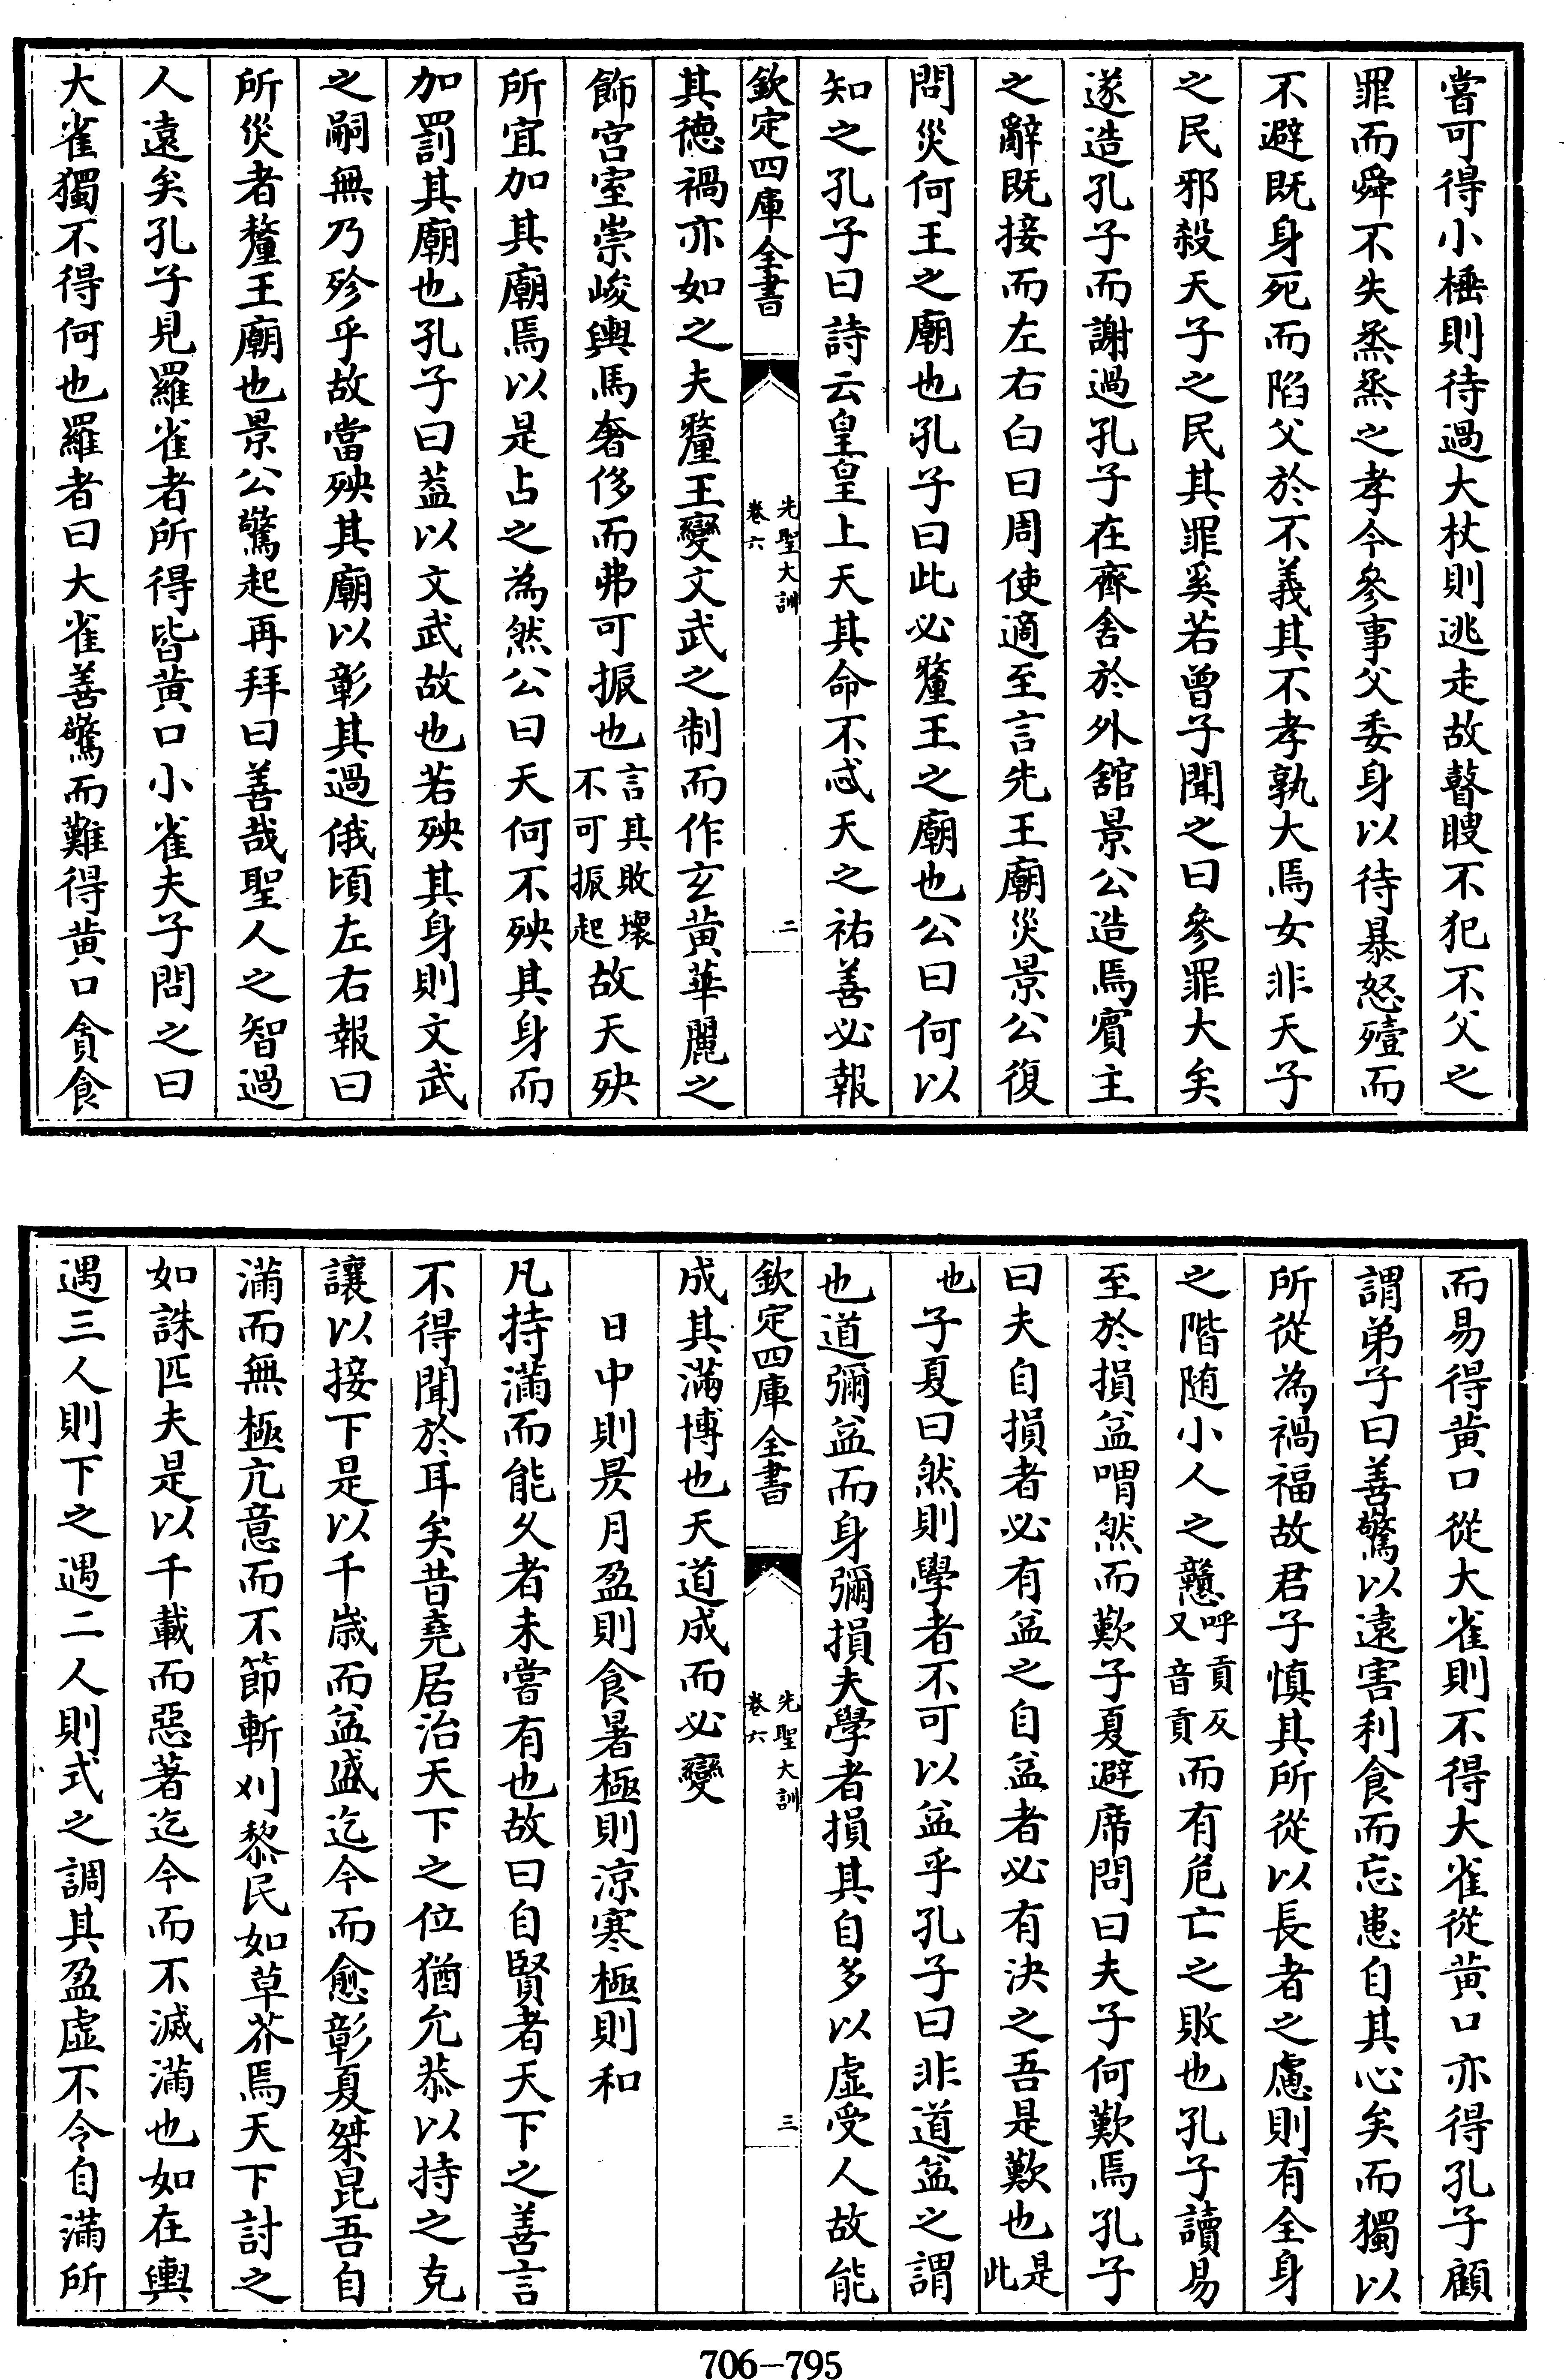 嘗可得小棰則待過大杖則逃走故瞽瞍不犯不父之
罪而舜不失烝烝之孝今參事父委身以待暴怒殪而
不避既身死而陷父於不義其不孝孰大焉女非天子
之民邪殺天子之民其罪奚若曾子聞之曰參罪大矣
遂造孔子而謝過孔子在齊舍於外舘景公造焉賓主
之辭既接而左右白曰周使適至言先王廟災景公復
問災何王之廟也孔子曰此必釐王之廟也公曰何以
知之孔子曰詩云皇皇上天其命不忒天之祐善必報
欽定四庫全書
先聖大訓
卷六
二
其德禍亦如之夫釐王變文武之制而作玄黄華麗之
飾宫室崇峻輿馬奢侈而弗可振也言其敗壞不可振起故天殃
所宜加其廟焉以是占之為然公曰天何不殃其身而
加罰其廟也孔子曰葢以文武故也若殃其身則文武
之嗣無乃殄乎故當殃其廟以彰其過俄頃左右報曰
所災者釐王廟也景公驚起再拜曰善哉聖人之智過
人遠矣孔子見羅雀者所得皆黄口小雀夫子問之曰
大雀獨不得何也羅者曰大雀善驚而難得黄口貪食
而易得黄口從大雀則不得大雀從黄口亦得孔子顧
謂弟子曰善驚以遠害利食而忘患自其心矣而獨以
所從為禍福故君子慎其所從以長者之慮則有全身
之階随小人之戇呼貢反又音貢而有危亡之敗也孔子讀易
至於損益喟然而歎子夏避席問曰夫子何歎焉孔子
曰夫自損者必有益之自益者必有決之吾是歎也是此
也子夏曰然則學者不可以益乎孔子曰非道益之謂
也道彌益而身彌損夫學者損其自多以虚受人故能
欽定四庫全書
先聖大訓
卷六
三
成其滿博也天道成而必變
日中則昃月盈則食暑極則涼寒極則和
凡持滿而能久者未嘗有也故曰自賢者天下之善言
不得聞於耳矣昔堯居治天下之位猶允恭以持之克
讓以接下是以千歳而益盛迄今而愈彰夏桀昆吾自
滿而無極亢意而不節斬刈黎民如草芥焉天下討之
如誅匹夫是以千載而惡著迄今而不滅滿也如在輿
遇三人則下之遇二人則式之調其盈虚不令自滿所
706—795